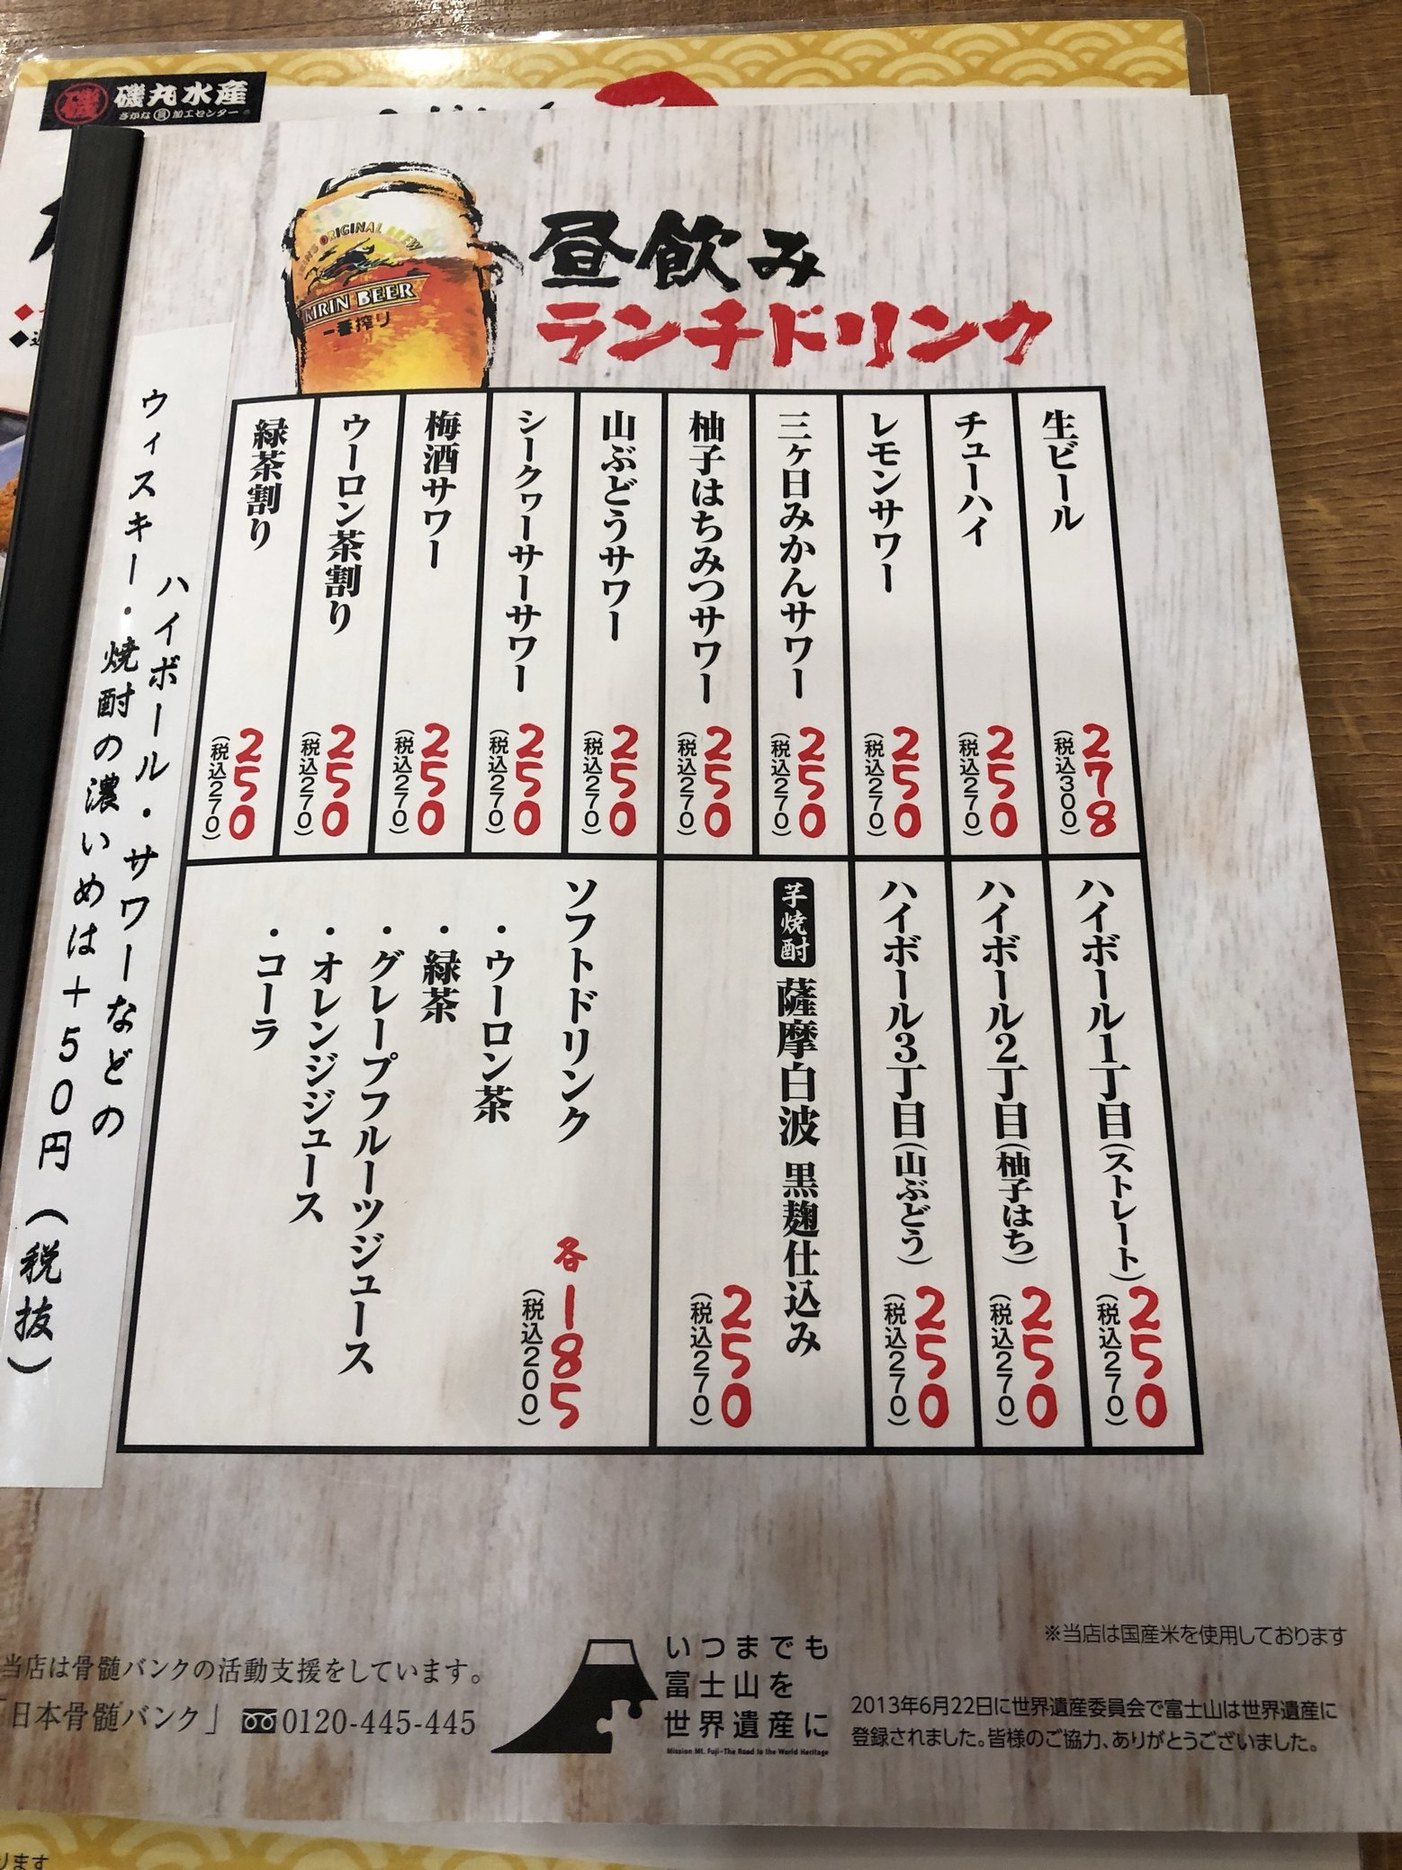 磯 磯丸水産
さかな 貝 加工センター
KIRIN BEER
一番搾り
昼飲み
ランチドリンク
生ビール 278 (税込300)
チューハイ 250 (税込270)
レモンサワー 250 (税込270)
三ヶ日みかんサワー 250 (税込270)
柚子はちみつサワー 250 (税込270)
山ぶどうサワー 250 (税込270)
シークヮーサーサワー 250 (税込270)
梅酒サワー 250 (税込270)
ウーロン茶割り 250 (税込270)
緑茶割り 250 (税込270)
ハイボール1丁目(ストレート) 250 (税込270)
ハイボール2丁目(柚子はち) 250 (税込270)
ハイボール3丁目(山ぶどう) 250 (税込270)
芋焼酎 薩摩白波 黒麹仕込み 250 (税込270)
ソフトドリンク 各185 (税込200)
・ウーロン茶
・緑茶
・グレープフルーツジュース
・オレンジジュース
・コーラ
ハイボール・サワーなどの
ウィスキー・焼酎の濃いめは+50円(税抜)
※当店は国産米を使用しております
当店は骨髄バンクの活動支援をしています。
「日本骨髄バンク」 0120-445-445
いつまでも
富士山を
世界遺産に
Mission Mt. Fuji-The Road to the World Heritage
2013年6月22日に世界遺産委員会で富士山は世界遺産に
登録されました。皆様のご協力、ありがとうございました。
ります